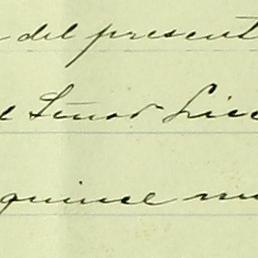 del present
Señor Lice
quince